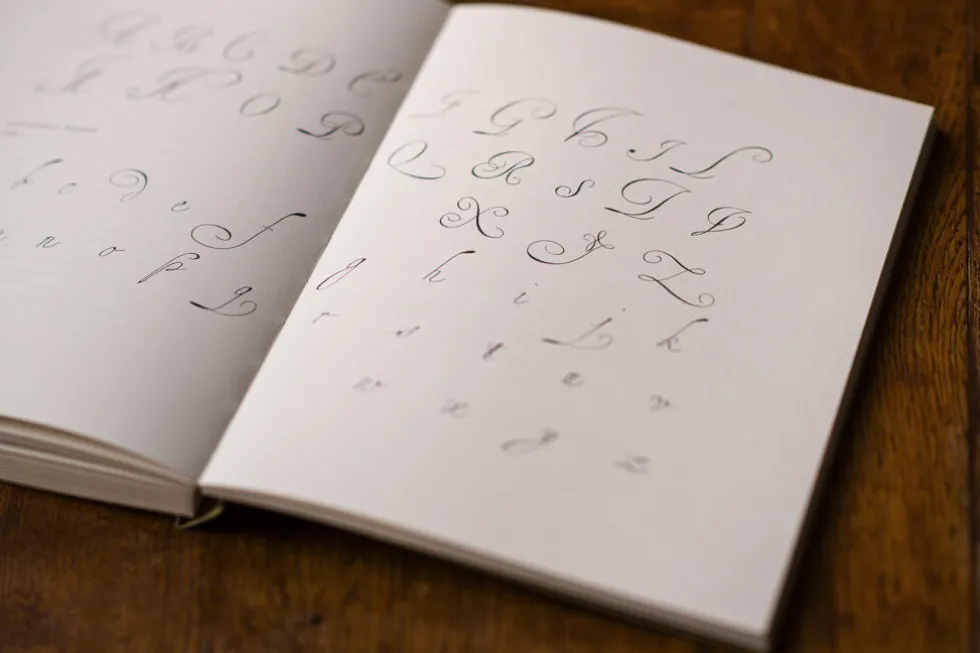 A B C D E
O P
b c d e f
n o p q
F G H I L
Q R S T
X Y Z
g h i j k
r s t u v
w x y z